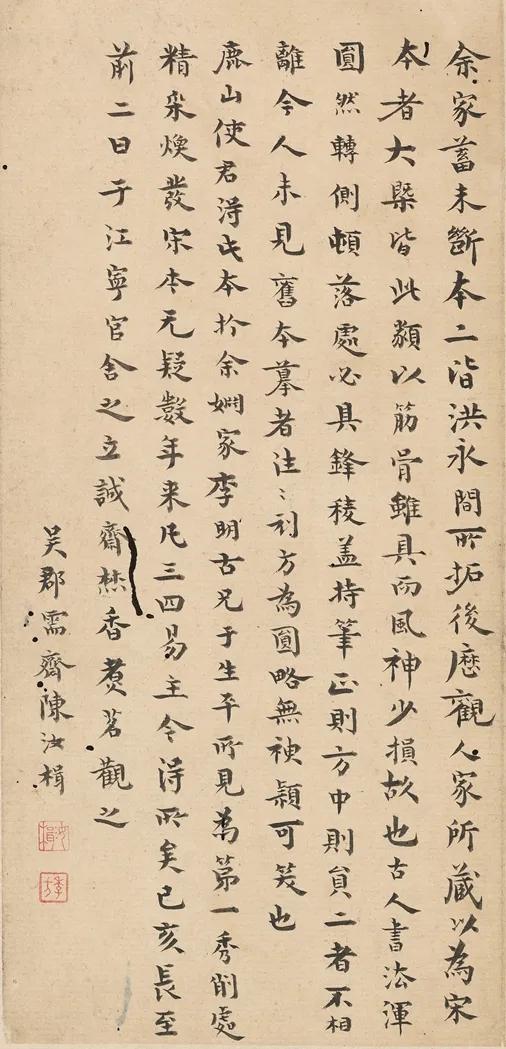 余家蓄未斷本二皆洪永間所拓後歷觀人家所蔵以為宋
本者大槩皆此類以筋骨雖具而風神少損故也古人書法渾
圓然轉側頓落處必具鋒稜盖持筆正則方中則員二者不相
離今人未見舊本摹者往〻刓方為圓略無神穎可笑也
鹿山使君淂此本於余姻家李明古兄于生平所見為第一秀削處
精采煥發宋本无疑數年来凡三四易主令淂所矣己亥長至
前二日于江寧官舍之立誠齋爇香煑茗觀之
吴郡需齋陳汝楫